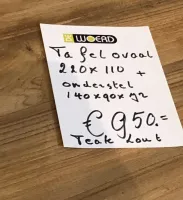 WOERD
Tafel ovaal
220 x 110 +
onderstel
140 x 90 x 72
€ 950.=
Teak hout